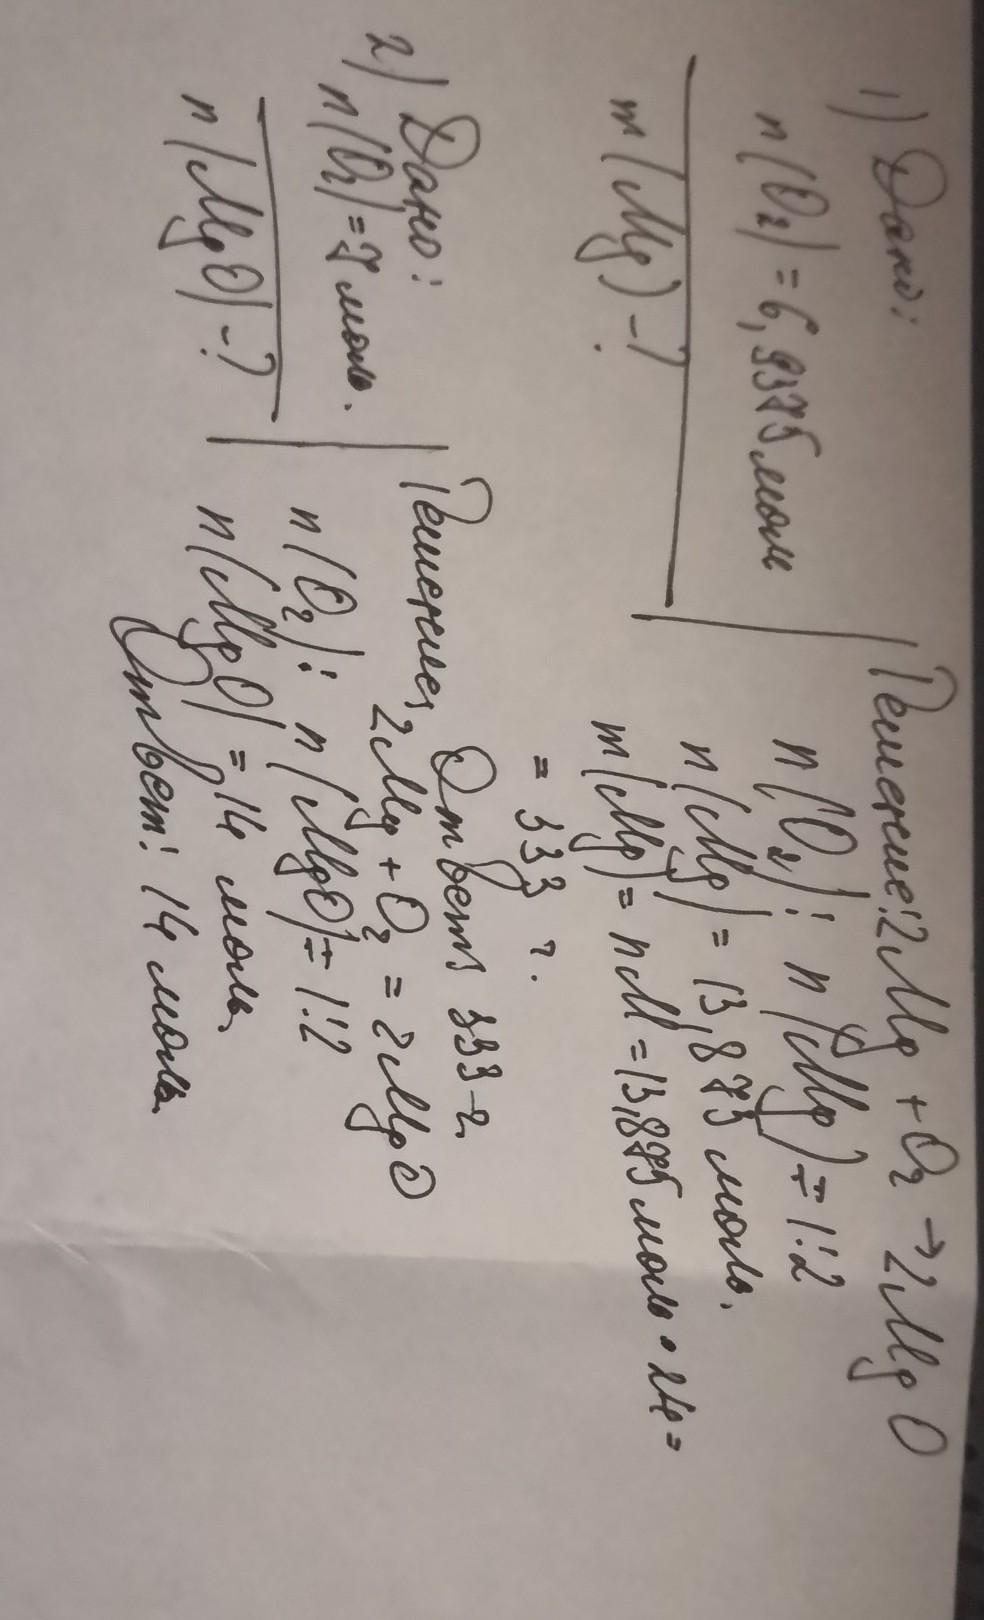 1) Дано:
n(O2) = 6,9375 моль
m(Mg) - ?
Решение: 2Mg + O2 → 2MgO
n(O2) : n(Mg) = 1:2
n(Mg) = 13,875 моль.
m(Mg) = nM = 13,875 моль · 24 =
= 333 г.
Ответ 333 г.
2) Дано:
n(O2) = 7 моль.
n(MgO) - ?
Решение, 2Mg + O2 = 2MgO
n(O2) : n(MgO) = 1:2
n(MgO) = 14 моль.
Ответ: 14 моль.